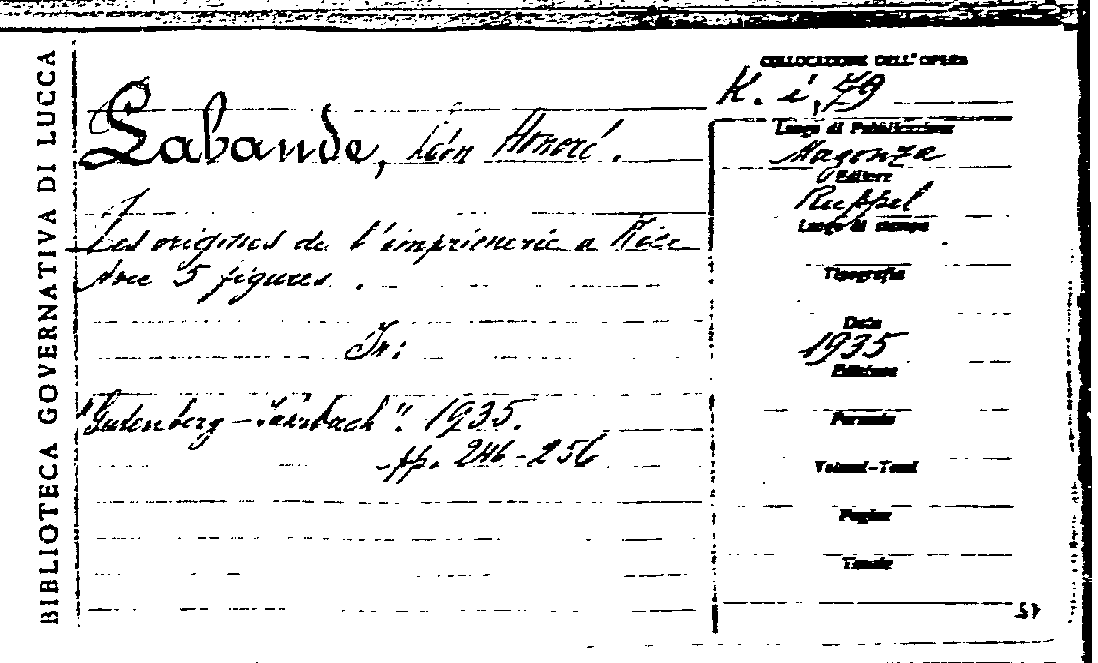 BIBLIOTECA GOVERNATIVA DI LUCCA
Labande, Léon Honoré.
Les origines de l'imprimerie a Nice
Avec 5 figures.
In:
"Gutenberg-Jahrbuch". 1935.
pp. 246-256
COLLOCAZIONE DELL'OPERA
K. i, 79
Luogo di Pubblicazione
Magonza
Editore
Ruppel
Luogo di stampa
Tipografia
Data
1935
Edizione
Formato
Volumi-Tomi
Pagine
Tavole